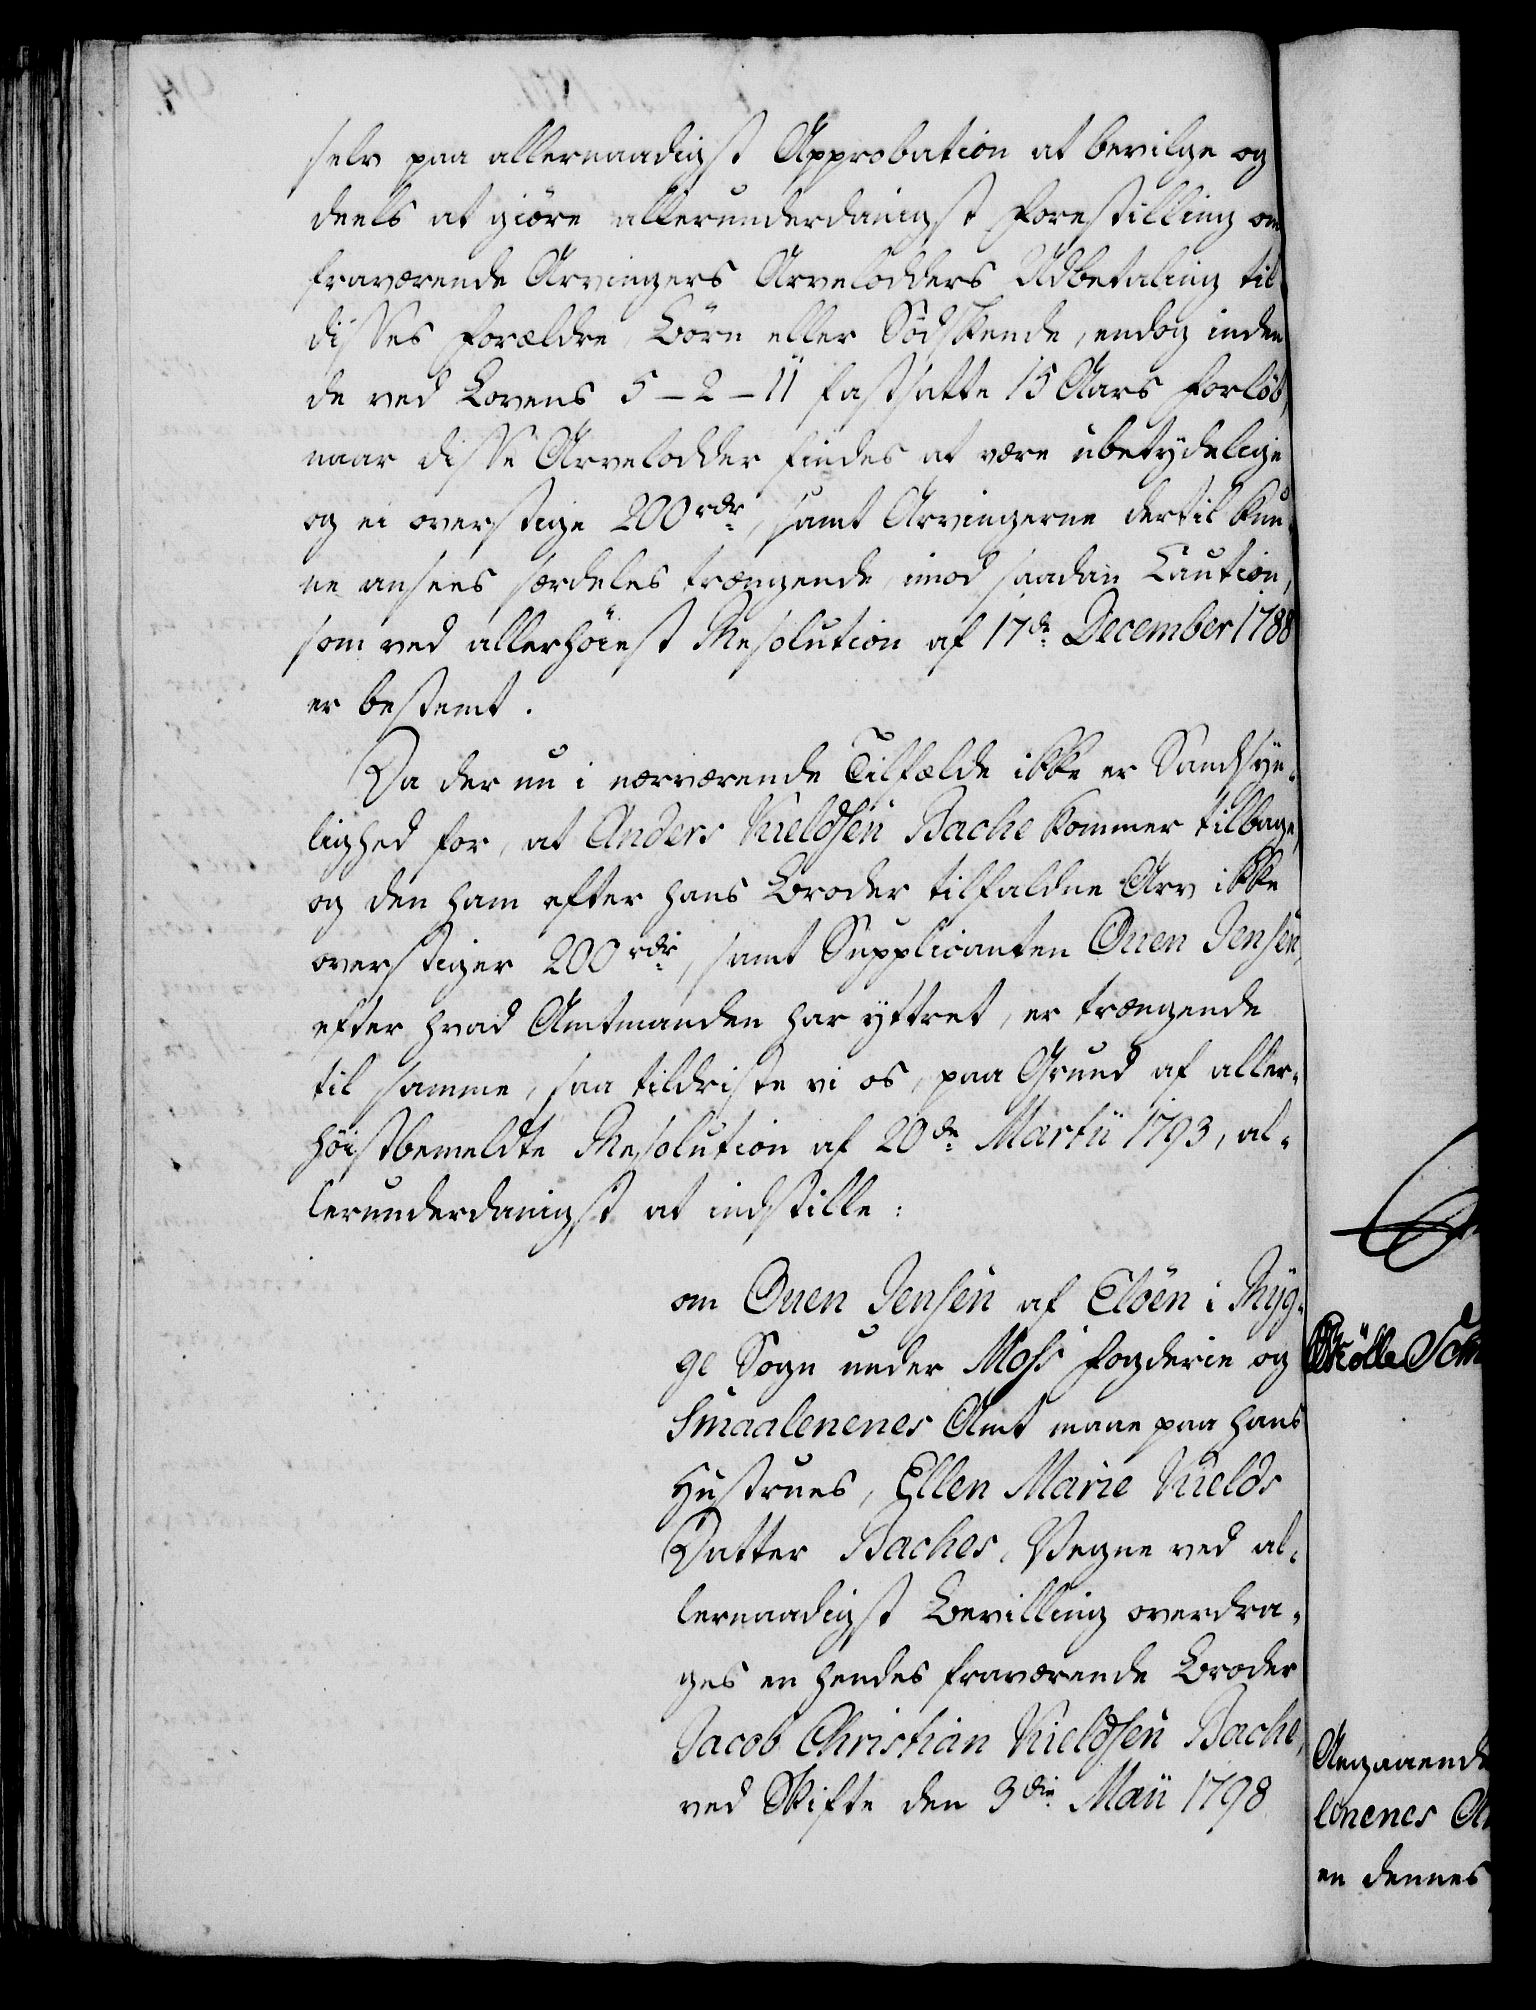 selv paa allernaadigst Approbation at bevilge og
deels at giöre allerunderdanigst Forestilling om
fraværende Arvingers Arvelodders Udbetaling til
disses Forældre, Börn eller Södskende, endog inden
de ved Lovens 5-2-11 fastsatte 15 Aars Forlöb,
naar disse Arvelodder findes at være ubetydelige
og ei overstige 200 rdr, samt Arvingerne dertil kun-
ne ansees særdeles trængende, imod saadan Caution,
som ved allerhöiest Resolution af 17de December 1788
er bestemt.
Da der nu i nærværende Tilfælde ikke er Sandsyn-
lighed for, at Anders Kieldsen Bache kommer tilbage,
og den ham efter hans Broder tilfaldne Arv ikke
overstiger 200 rdr, samt Supplicanten Ouen Jensen,
efter hvad Amtmanden har yttret, er trængende
til samme, saa tildriste vi os, paa Grund af aller-
höistbemeldte Resolution af 20de Martii 1793, al-
lerunderdanigst at indstille:
om Ouen Jensen af Elöen i Ryg-
ge Sogn under Moss Fogderie og
Smaalenenes Amt maae paa hans
Hustrues, Ellen Marie Kields
Datter Baches, Vegne ved al-
lernaadigst Bevilling overdra-
ges en hendes fraværende Broder
Jacob Christian Kieldsen Bache,
ved Skifte den 3die Maii 1798
Angaaende
lenenes
en dennes